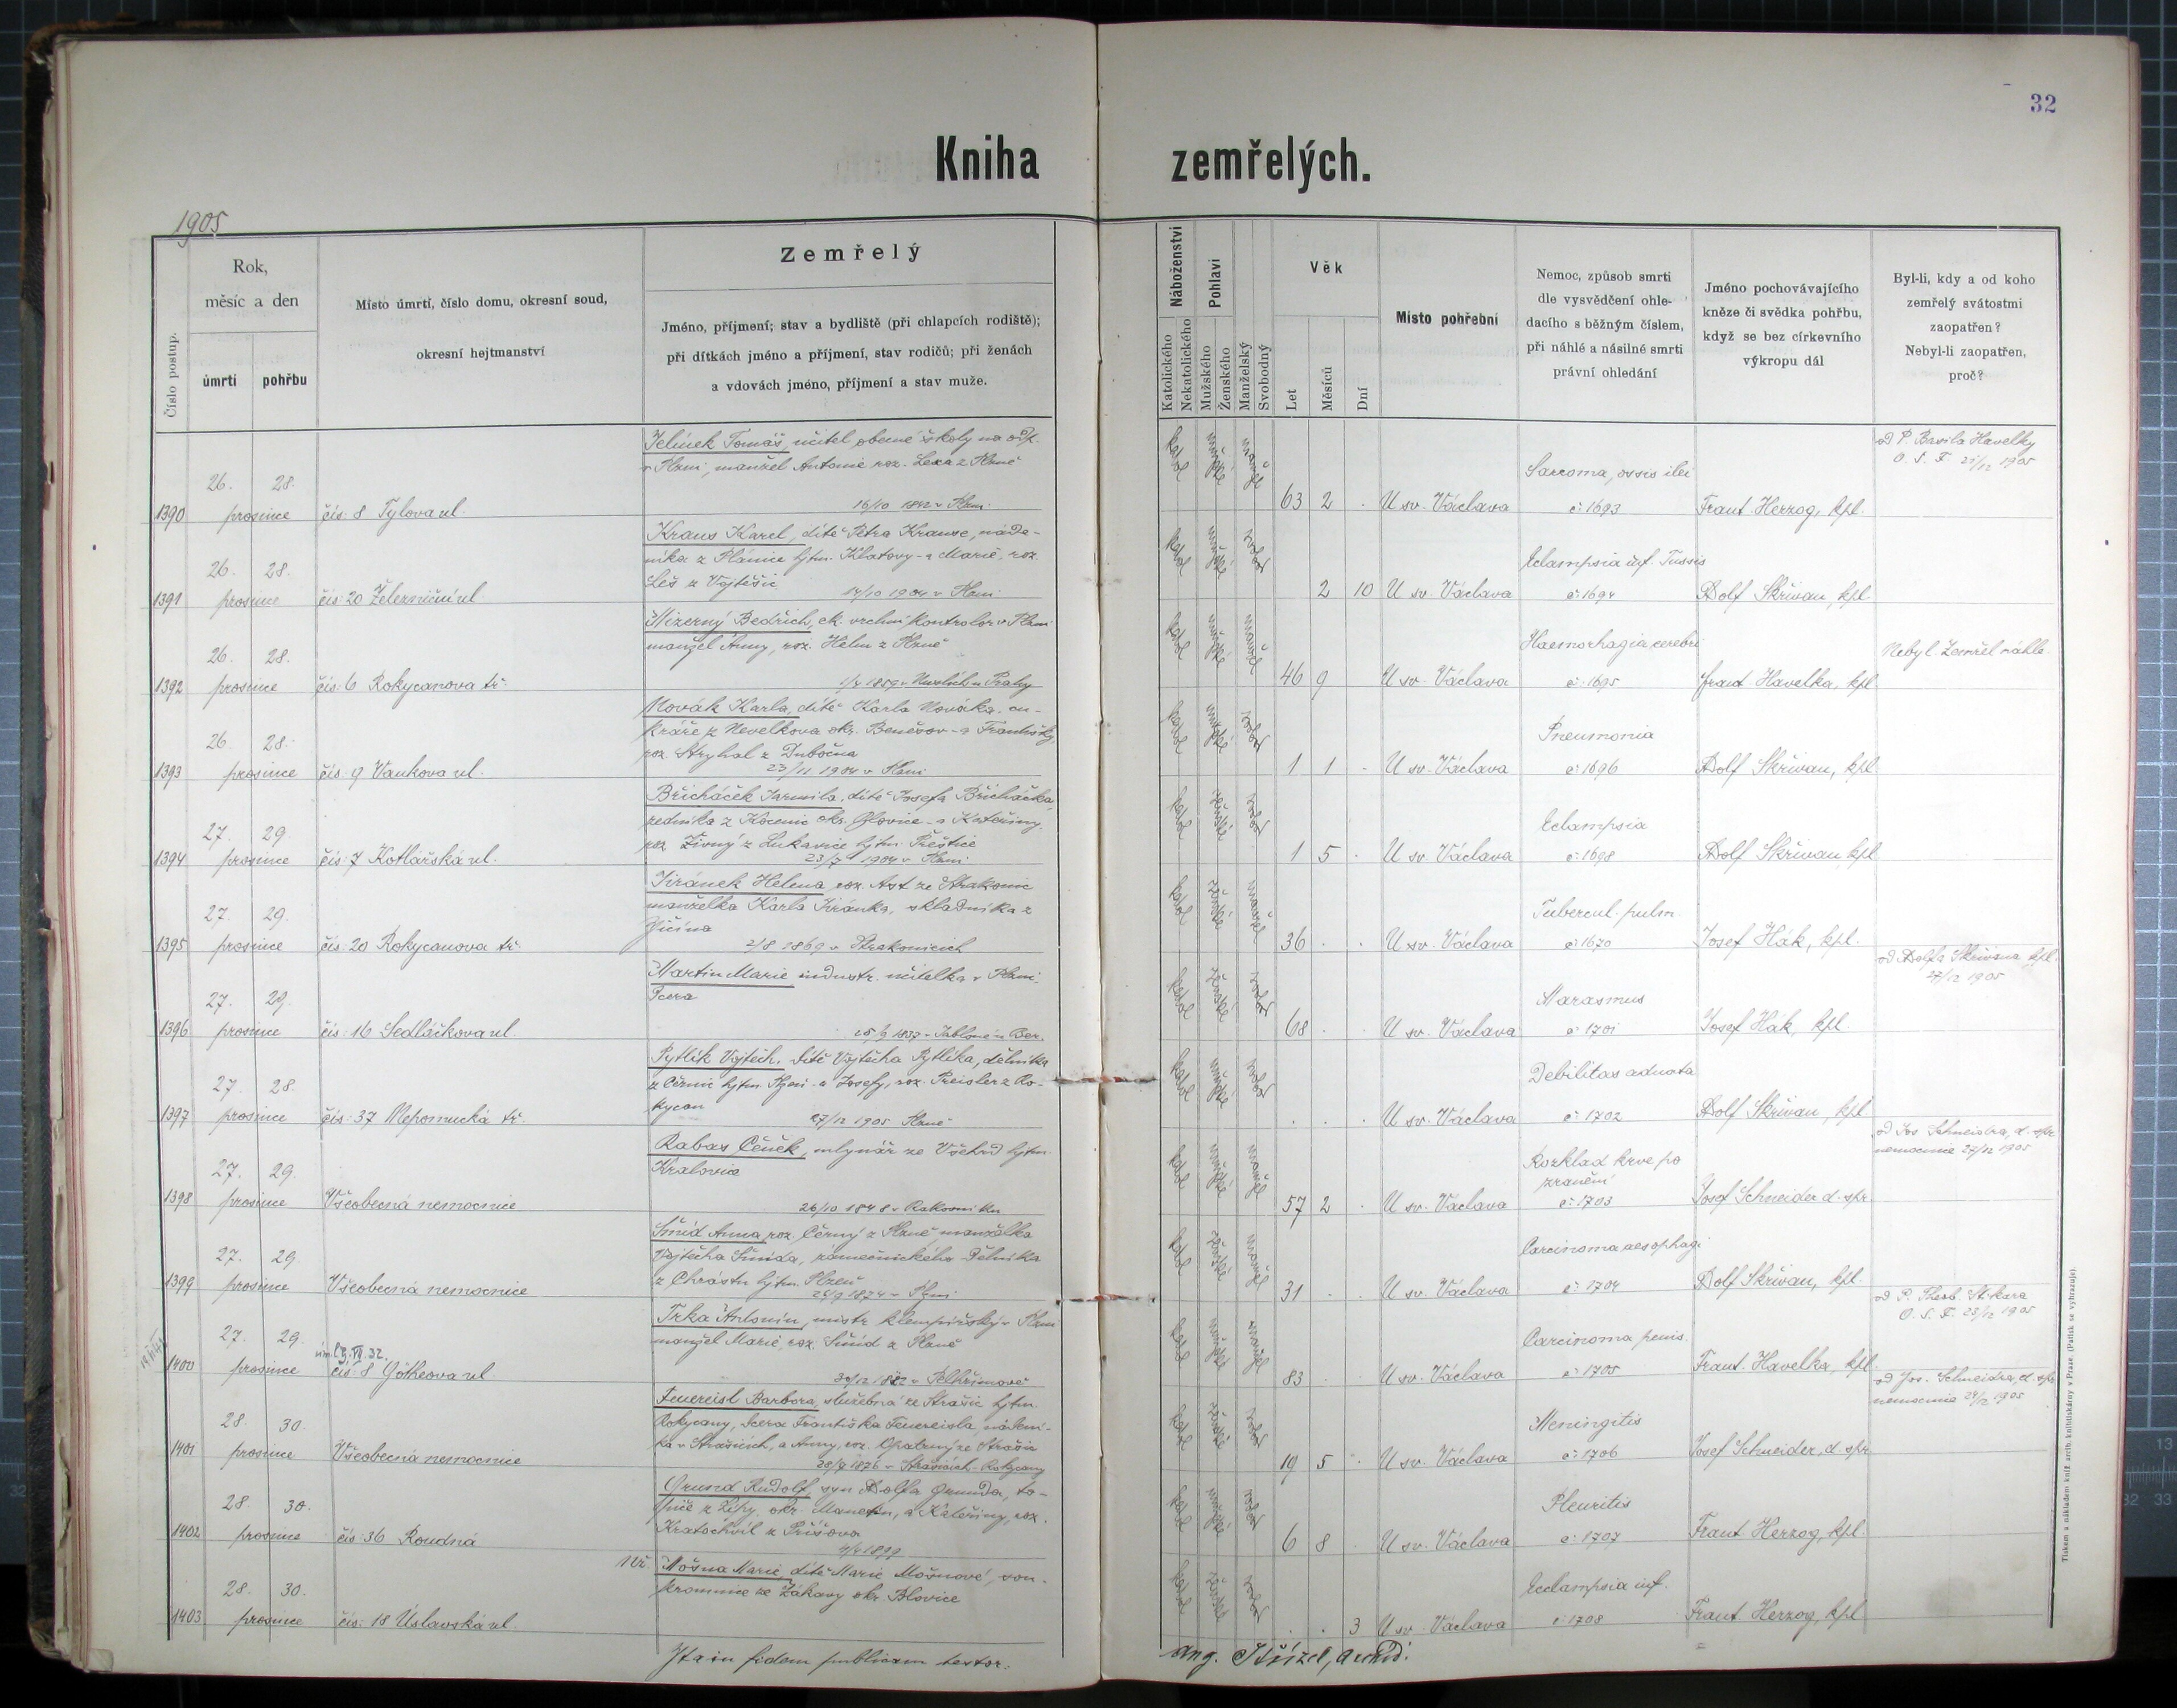 32
Kniha zemřelých.
1905
Číslo postup.
Rok,
měsíc a den
úmrtí
pohřbu
Místo úmrtí, číslo domu, okresní soud,
okresní hejtmanství
Zemřelý
Jméno, příjmení; stav a bydliště (při chlapcích rodiště);
při dítkách jméno a příjmení, stav rodičů; při ženách
a vdovách jméno, příjmení a stav muže.
Náboženství
Katolického
Nekatolického
Pohlaví
Mužského
Ženského
Manželský
Svobodný
Věk
Let
Měsíců
Dní
Místo pohřební
Nemoc, způsob smrti
dle vysvědčení ohle-
dacího s běžným číslem,
při náhlé a násilné smrti
právní ohledání
Jméno pochovávajícího
kněze či svědka pohřbu,
když se bez církevního
výkropu dál
Byl-li, kdy a od koho
zemřelý svátostmi
zaopatřen?
Nebyl-li zaopatřen,
proč?
1390
26. 28.
prosince
čís: 8 Tylova ul.
Jelínek Tomáš, učitel obecné školy na odp.
v Plzni, manžel Antonie roz. Lexa z Plzně
16/10 1842 v Plzni
63 2 .
U sv. Václava
Sarcoma, ossis ilei
č: 1693
Frant. Herzog, kpl.
od P. Basila Havelky
O. S. F. 21/12 1905
1391
26. 28.
prosince
čís: 20 Železniční ul
Kraus Karel, dítě Petra Krause, náde-
níka z Plánice hjtm. Klatovy - a Marie, roz.
Leš z Vojtěšic
14/10 1904 v Plzni
2 10
U sv. Václava
Eclampsia inf. Tussis
č: 1694
Adolf Skřivan, kpl
1392
26. 28.
prosince
čís: 6 Rokycanova tř.
Mizerný Bedřich, ck. vrchní kontrolor v Plzni
manžel Anny, roz. Helm z Plzně
46 9
U sv. Václava
Haemorhagia cerebri
č: 1695
Frant Havelka, kpl
Nebyl. Zemřel náhle.
1393
26. 28.
prosince
čís: 9 Vaňkova ul.
Novák Karla, dítě Karla Nováka, cu-
kráře z Neveklova okr. Benešov - a Františky,
roz. Stryhal z Dubočna
23/11 1904 v Plzni
1 1 .
U sv. Václava
Pneumonia
č: 1696
Adolf Skřivan, kpl.
1394
27. 29.
prosince
čís: 7 Kotlářská ul.
Břicháček Jarmila, dítě Josefa Břicháčka,
zedníka z Kocenic okr. Blovice - a Kateřiny,
roz. Živný z Lukavice hjtm. Přeštice
23/7 1904 v Plzni
1 5 .
U sv. Václava
Eclampsia
č: 1698
Adolf Skřivan, kpl
1395
27. 29.
prosince
čís: 20 Rokycanova tř.
Jiránek Helena, roz. Ast ze Strakonic
manželka Karla Jiránka, skladníka z
Jičína
2/8 1869 v Strakonicích
36 . .
U sv. Václava
Tubercul. pulm.
č: 1670
Josef Hák, kpl.
1396
27. 29.
prosince
čís: 16 Sedláčkova ul.
Martin Marie, industr. učitelka v Plzni,
dcera
68 . .
U sv. Václava
Marasmus
č: 1701
Josef Hák, kpl.
od Adolfa Skřivana kpl.
27/12 1905
1397
27. 28.
prosince
čís: 37 Nepomucká tř.
Pytlík Vojtěch, dítě Vojtěcha Pytlíka, dělníka
z Černic hjtm. Plzeň - a Josefy, roz. Preisler z Ro-
kycan
27/12 1905 Plzně
. . .
U sv. Václava
Debilitas adnata
č: 1702
Adolf Skřivan, kpl
1398
27. 29.
prosince
Všeobecná nemocnice
Rabas Čeněk, mlynář ze Všehrd hjtm.
Kralovice
26/10 1848 v Rakovníku
57 2 .
U sv. Václava
Rozklad krve po
zranění
č: 1703
Josef Schneider d. spr
od Jos Schneidra, d. spr
nemocnice 27/12 1905
1399
27. 29.
prosince
Všeobecná nemocnice
Šmíd Anna, roz. Černý z Plzně manželka
Vojtěcha Šmída, zámečnického dělníka
z Chrástu hjtm. Plzeň
31 . .
U sv. Václava
Carcinoma aesophagi
č: 1704
Adolf Skřivan, kpl.
1400
27. 29.
prosince
čís: 8 Götheova ul
Trka Antonín, mistr klempířský v Plzni
manžel Marie, roz. Šmíd z Plzně
83 . .
U sv. Václava
Carcinoma penis.
č: 1705
Frant. Havelka, kpl.
O. S. F. 23/12 1905
1401
28. 30.
prosince
Všeobecná nemocnice
Feuereisl Barbora, služebná ze Strašic hjtm.
Rokycany, dcera Františka Feuereisla, nádení-
ka v Strašicích, a Anny, roz. Opatrný ze Strašic
28/7 1876 v Strašicích - Rokycany
19 5 .
U sv. Václava
Meningitis
č: 1706
Josef Schneider, d. spr
od Jos. Schneidra, d. spr
nemocnice 24/12 1905
1402
28. 30.
prosince
čís: 36 Roudná
Grund Rudolf, syn Adolfa Grunda, to-
piče z Lípy, okr. Manetín, a Kateřiny, roz.
Kratochvíl z Příšova
4/4 1899
6 8 .
U sv. Václava
Pleuritis
č: 1707
Frant Herzog, kpl.
1403
28. 30.
prosince
čís: 18 Úslavská ul.
Nž.
Mošna Marie, dítě Marie Mošnové, sou-
kromnice ze Žákavy okr. Blovice
. . 3
U sv. Václava
Ecclampsia inf.
č: 1708
Frant Herzog, kpl
Ita in fidem publicam testor: